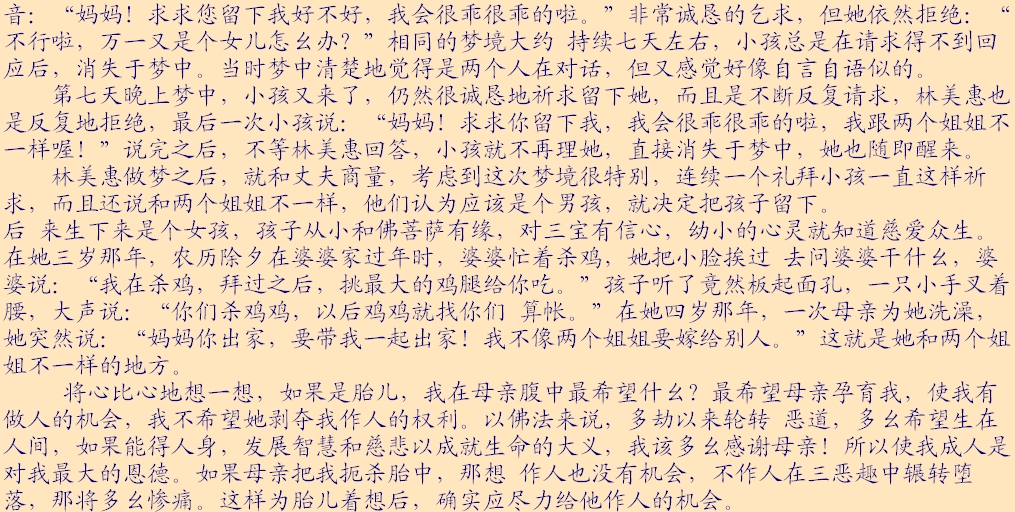 音：“妈妈！求求您留下我好不好，我会很乖很乖的啦。”非常诚恳的乞求，但她依然拒绝：“
不行啦，万一又是个女儿怎幺办？”相同的梦境大约 持续七天左右，小孩总是在请求得不到回
应后，消失于梦中。当时梦中清楚地觉得是两个人在对话，但又感觉好像自言自语似的。
第七天晚上梦中，小孩又来了，仍然很诚恳地祈求留下她，而且是不断反复请求，林美惠也
是反复地拒绝，最后一次小孩说：“妈妈！求求你留下我，我会很乖很乖的啦，我跟两个姐姐不
一样喔！”说完之后，不等林美惠回答，小孩就不再理她，直接消失于梦中，她也随即醒来。
林美惠做梦之后，就和丈夫商量，考虑到这次梦境很特别，连续一个礼拜小孩一直这样祈
求，而且还说和两个姐姐不一样，他们认为应该是个男孩，就决定把孩子留下。
后 来生下来是个女孩，孩子从小和佛菩萨有缘，对三宝有信心，幼小的心灵就知道慈爱众生。
在她三岁那年，农历除夕在婆婆家过年时，婆婆忙着杀鸡，她把小脸挨过 去问婆婆干什幺，婆
婆说：“我在杀鸡，拜过之后，挑最大的鸡腿给你吃。”孩子听了竟然板起面孔，一只小手叉着
腰，大声说：“你们杀鸡鸡，以后鸡鸡就找你们 算帐。”在她四岁那年，一次母亲为她洗澡，
她突然说：“妈妈你出家，要带我一起出家！我不像两个姐姐要嫁给别人。”这就是她和两个姐
姐不一样的地方。
将心比心地想一想，如果是胎儿，我在母亲腹中最希望什幺？最希望母亲孕育我，使我有
做人的机会，我不希望她剥夺我作人的权利。以佛法来说，多劫以来轮转 恶道，多幺希望生在
人间，如果能得人身，发展智慧和慈悲以成就生命的大义，我该多幺感谢母亲！所以使我成人是
对我最大的恩德。如果母亲把我扼杀胎中，那想 作人也没有机会，不作人在三恶趣中辗转堕
落，那将多幺惨痛。这样为胎儿着想后，确实应尽力给他作人的机会。